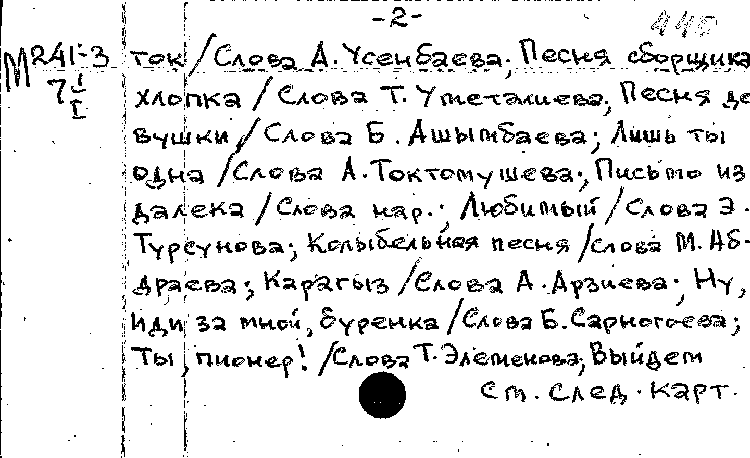 -2-
440
М241-3 ток/Слова А. Усенбаева; Песня сборщика
7 I/I хлопка/Слова Т. Уметалиева; Песня де
вушки/Слова Б. Ашымбаева; Лишь ты
одна/Слова А. Токтомушева; Письмо из
далека/Слова нар.; Любимый/Слова Э.
Турсунова; Колыбельная песня/слова М. Аб-
драева; Карагыз/Слова А. Арзиева; Ну,
иди за мной, буренка/Слова Б. Сарногоева;
Ты, пионер!/Слова Т. Элеменова; Выйдем
см. след. карт.